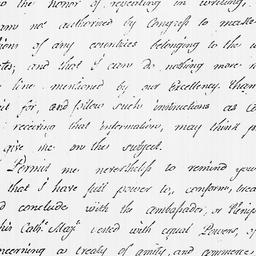 the honor of repeating in writing,
am not authorized by Congress to make
tions of any countries belonging to the u
and that I can do nothing more
line mentioned by our Excellency than
it for, and follow such instructions as Co
receiving that information, may think p
give me on the subject.
Permit me nevertheless to remind your
that I have full power to, confer, trea
d conclude with the ambassador, or Plenip
his Cath: Maj: vested with equal Powers, of
ncerning a treaty of amity and commerce